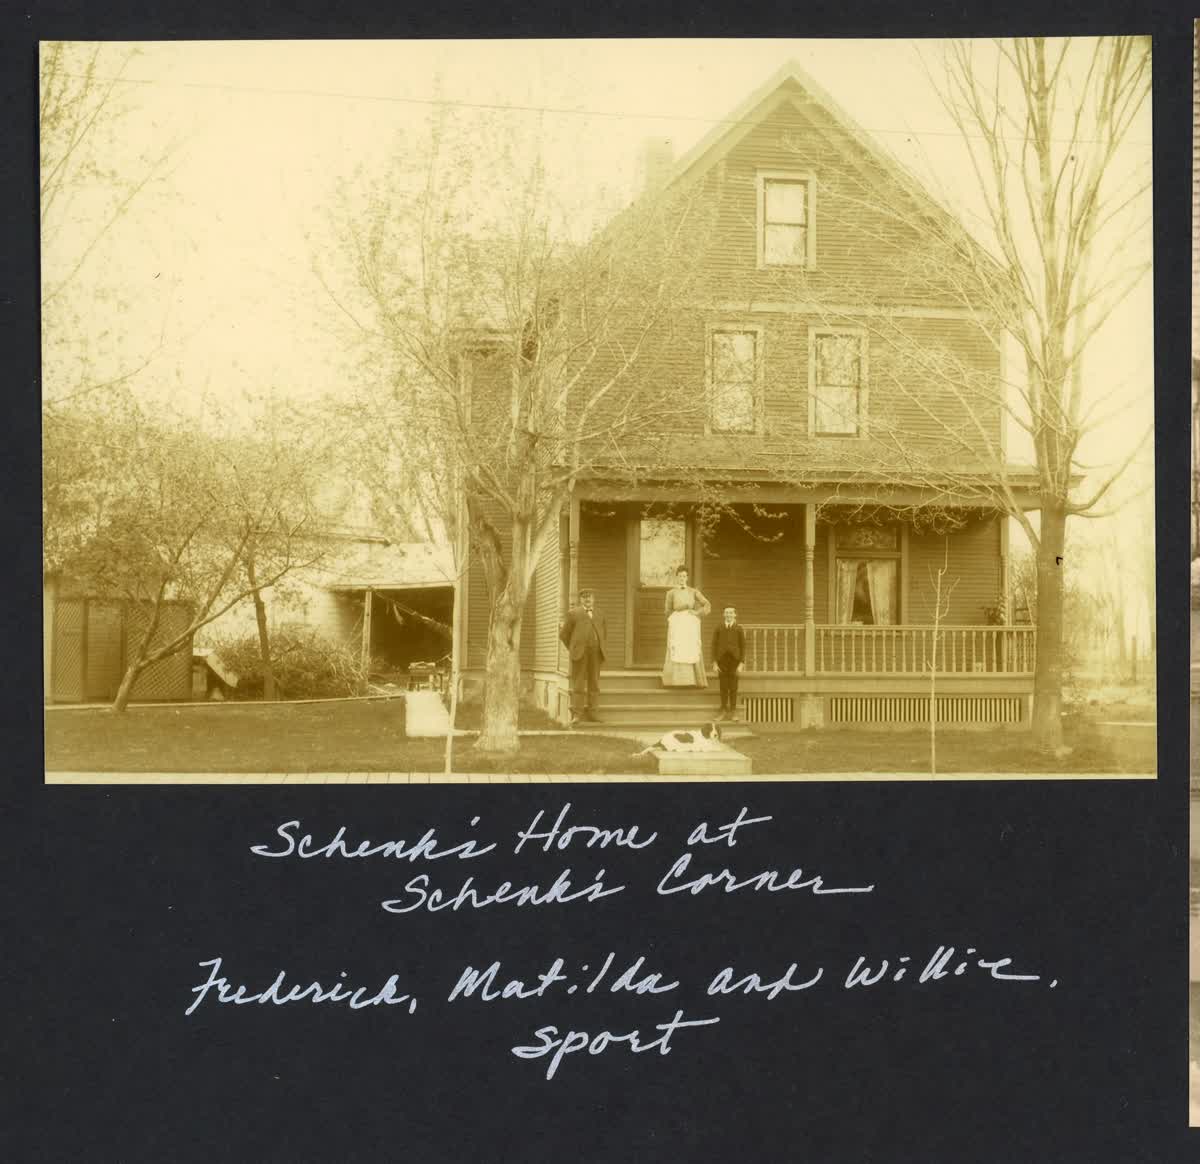 Schenk's Home at
Schenk's Corner
Frederick, Matilda and Willie.
Sport